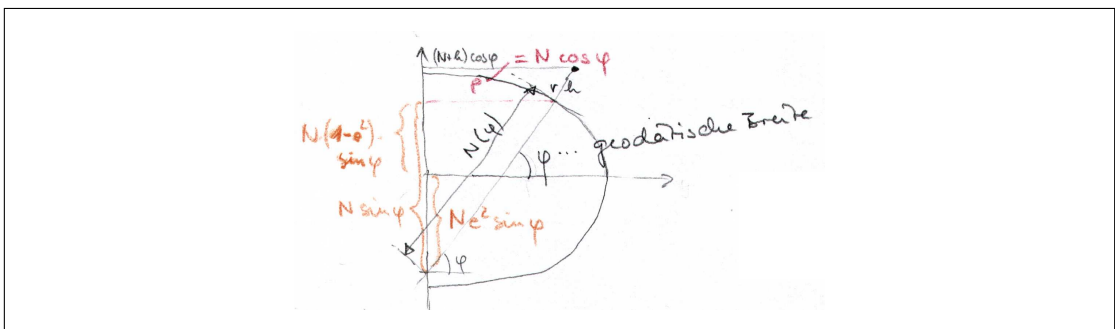 (N+h)cosφ
= N cosφ
p
h
N(1-e²)·
sinφ
N(φ)
φ... geodätische Breite
N sinφ
Ne² sinφ
φ